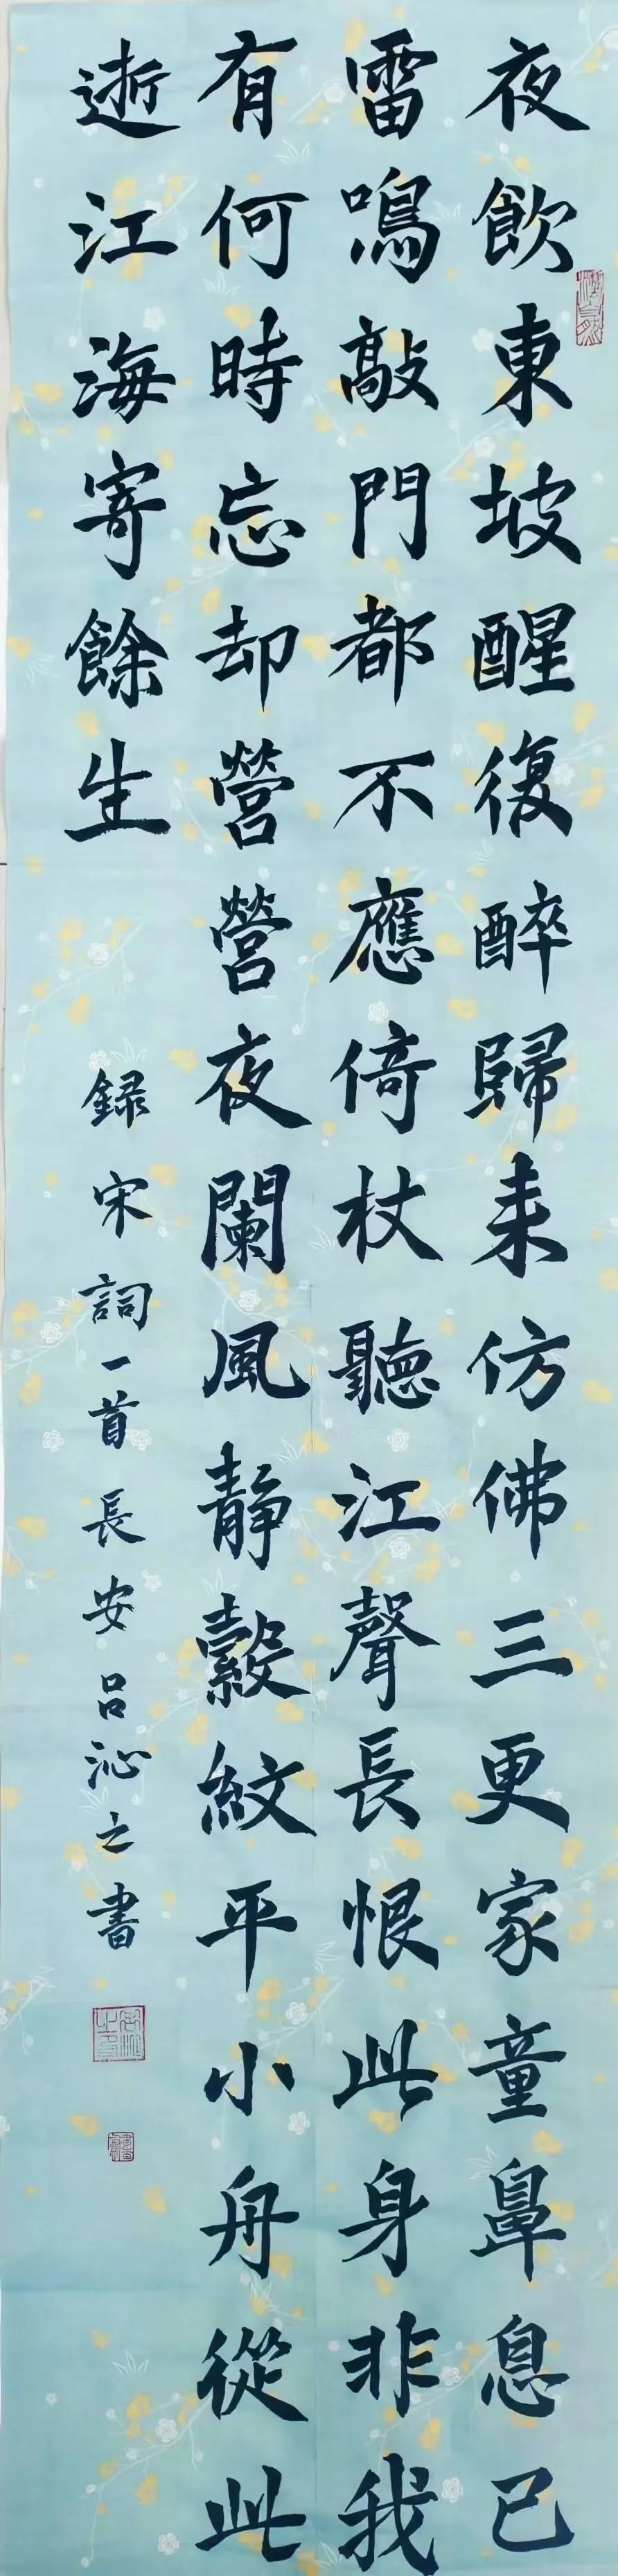 夜飲東坡醒復醉歸来仿佛三更家童鼻息已
雷鳴敲門都不應倚杖聽江聲長恨此身非我
有何時忘却營營夜闌風靜縠紋平小舟從此
逝江海寄餘生
録宋詞一首長安呂沁之書